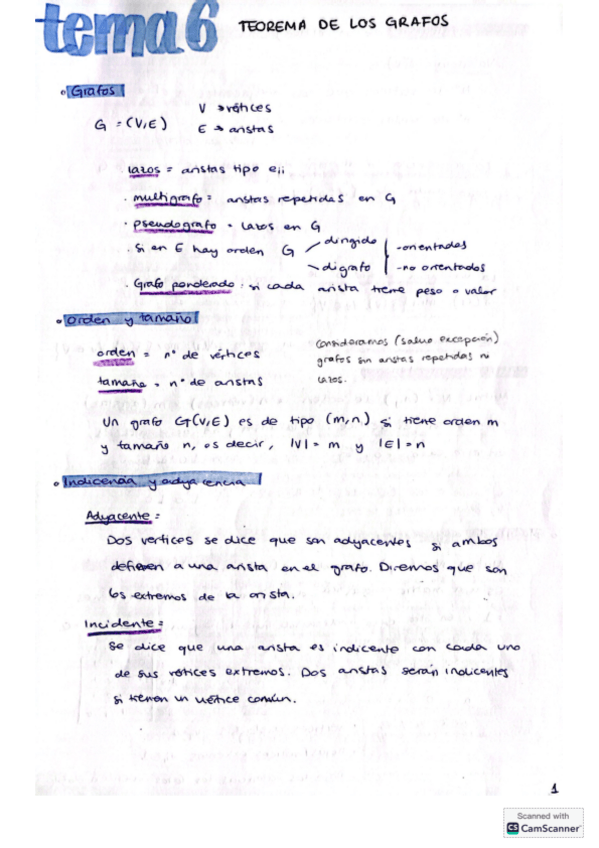 tema 6 TEOREMA DE LOS GRAFOS
Grafos
G = (V,E) V → vértices
E → aristas
lazos = aristas tipo eii
· multigrafo = aristas repetidas en G
· pseudografo = lazos en G
· Si en E hay orden G dirigido - orientados
digrafo - no orientados
· Grafo ponderado: si cada arista tiene peso o valor
Orden y tamaño
orden = nº de vértices
tamaño = nº de aristas
consideramos (salvo excepción)
grafos sin aristas repetidas ni
lazos.
Un grafo G(V,E) es de tipo (m,n) si tiene orden m
y tamaño n, es decir, |V| = m y |E| = n
Indicencia y adyacencia
Adyacente:
Dos vertices se dice que son adyacentes si ambos
definen a una arista en el grafo. Diremos que son
los extremos de la arista.
Incidente:
Se dice que una arista es indicente con cada uno
de sus vértices extremos. Dos aristas serán indicentes
si tienen un vértice común.
1
Scanned with
CS CamScanner